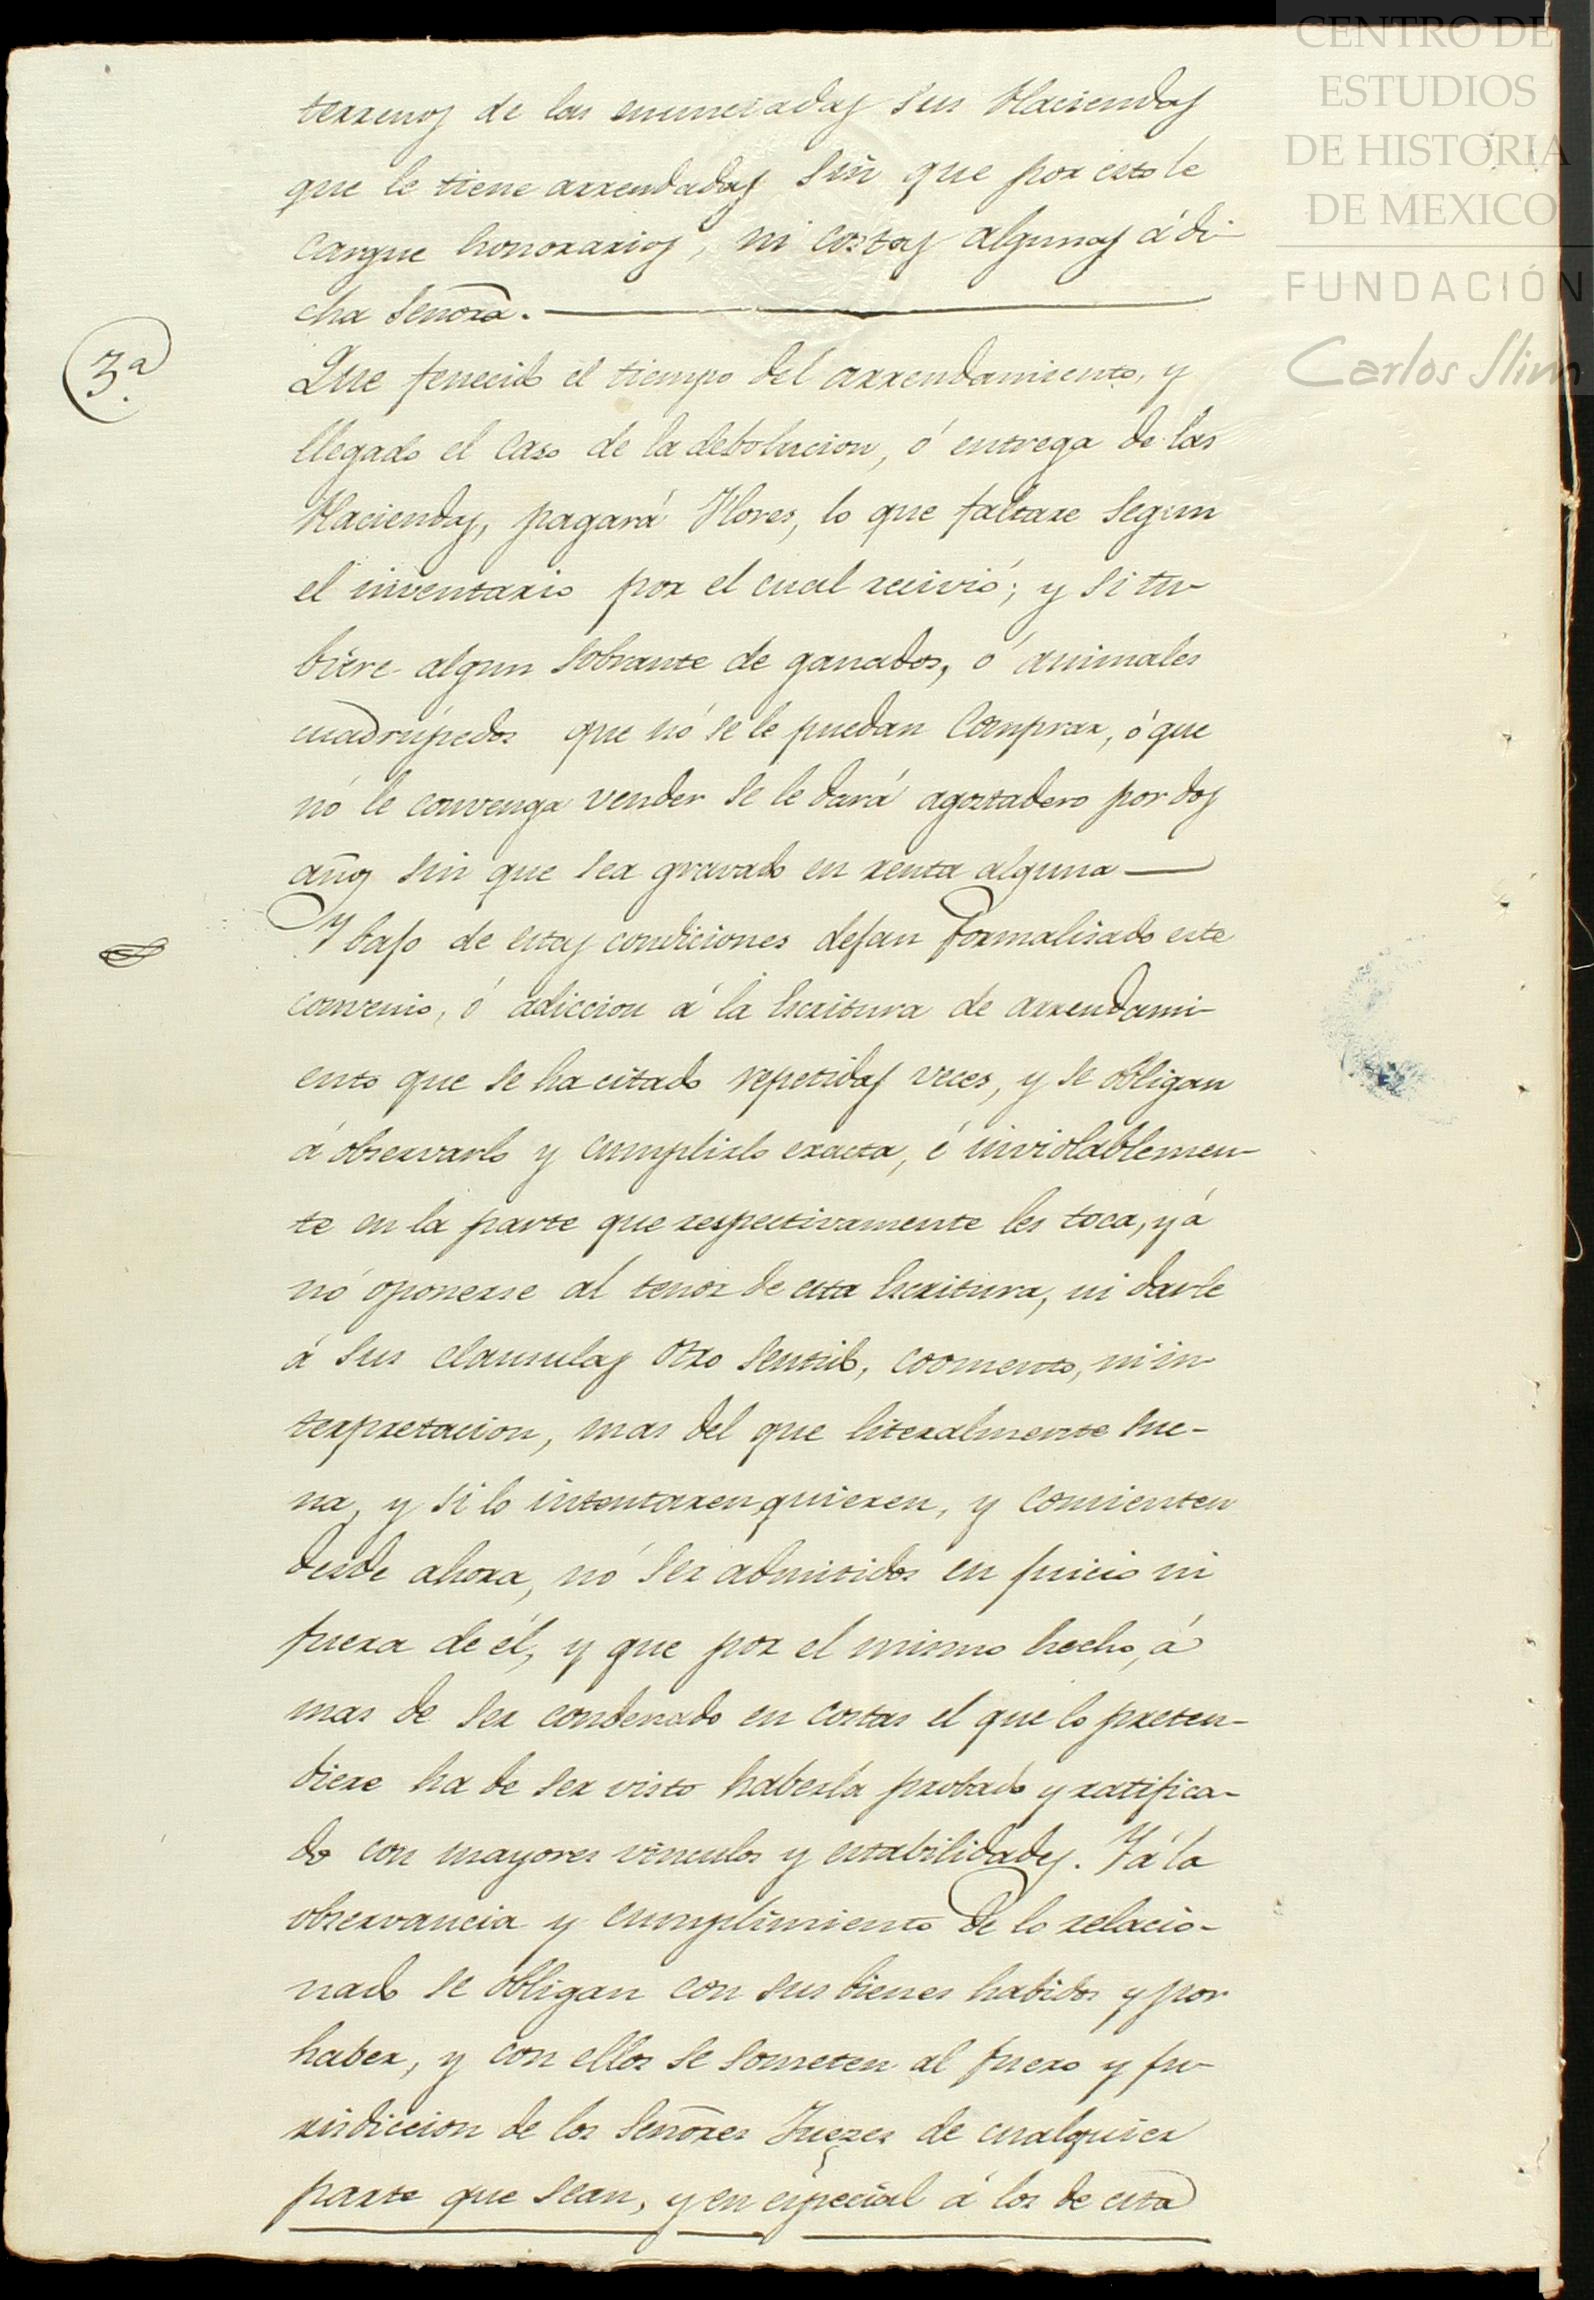 CENTRO DE
ESTUDIOS
DE HISTORIA
DE MEXICO
FUNDACIÓN
Carlos Slim
terrenos de las enunciadas sus Haciendas
que le tiene arrendadas sin que por esto le
cargue honorarios, ni costas algunas á di-
cha Señora.
3ª.
Que fenecido el tiempo del arrendamiento, y
llegado el caso de la debolucion, ó entrega de las
Haciendas, pagará Flores, lo que faltare segun
el inventario por el cual recivió; y si tu-
biere algun sobrante de ganados, ó animales
cuadrúpedos que nó se le puedan comprar, ó que
nó le convenga vender se le dará agostadero por dos
años sin que sea gravado en renta alguna
Y bajo de estas condiciones dejan formalisado este
convenio, ó adiccion á la Escritura de arrendami-
ento que se ha citado repetidas veces, y se obligan
á observarlo y cumplirlo exacta, é inviolablemen-
te en la parte que respectivamente les toca, y á
nó oponerse al tenor de esta Escritura, ni darle
á sus clausulas otro sentido, coomento, ni in-
terpretacion, mas del que literalmente sue-
na, y si lo intentaren quieren, y comienten
desde ahora, nó ser admitidos en juicio ni
fuera de él, y que por el mismo hecho, á
mas de ser condenado en costas el que lo preten-
diere ha de ser visto haberla probado y ratifica-
do con mayores vinculos y estabilidades. Y á la
observancia y cumplimiento de lo relacio-
nado se obligan con sus bienes habidos y por
haber, y con ellos se someten al fuero y ju-
risdiccion de los Señores Juezes de cualquier
parte que sean, y en especial á los de esta